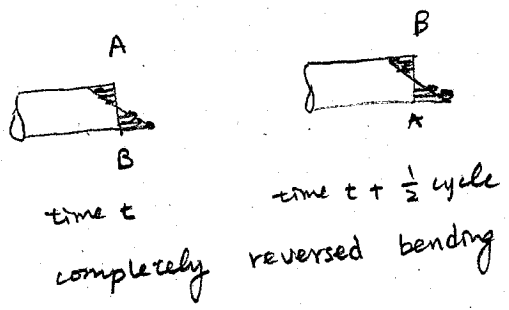 A
B
B
A
time t
time t + 1/2 cycle
completely reversed bending